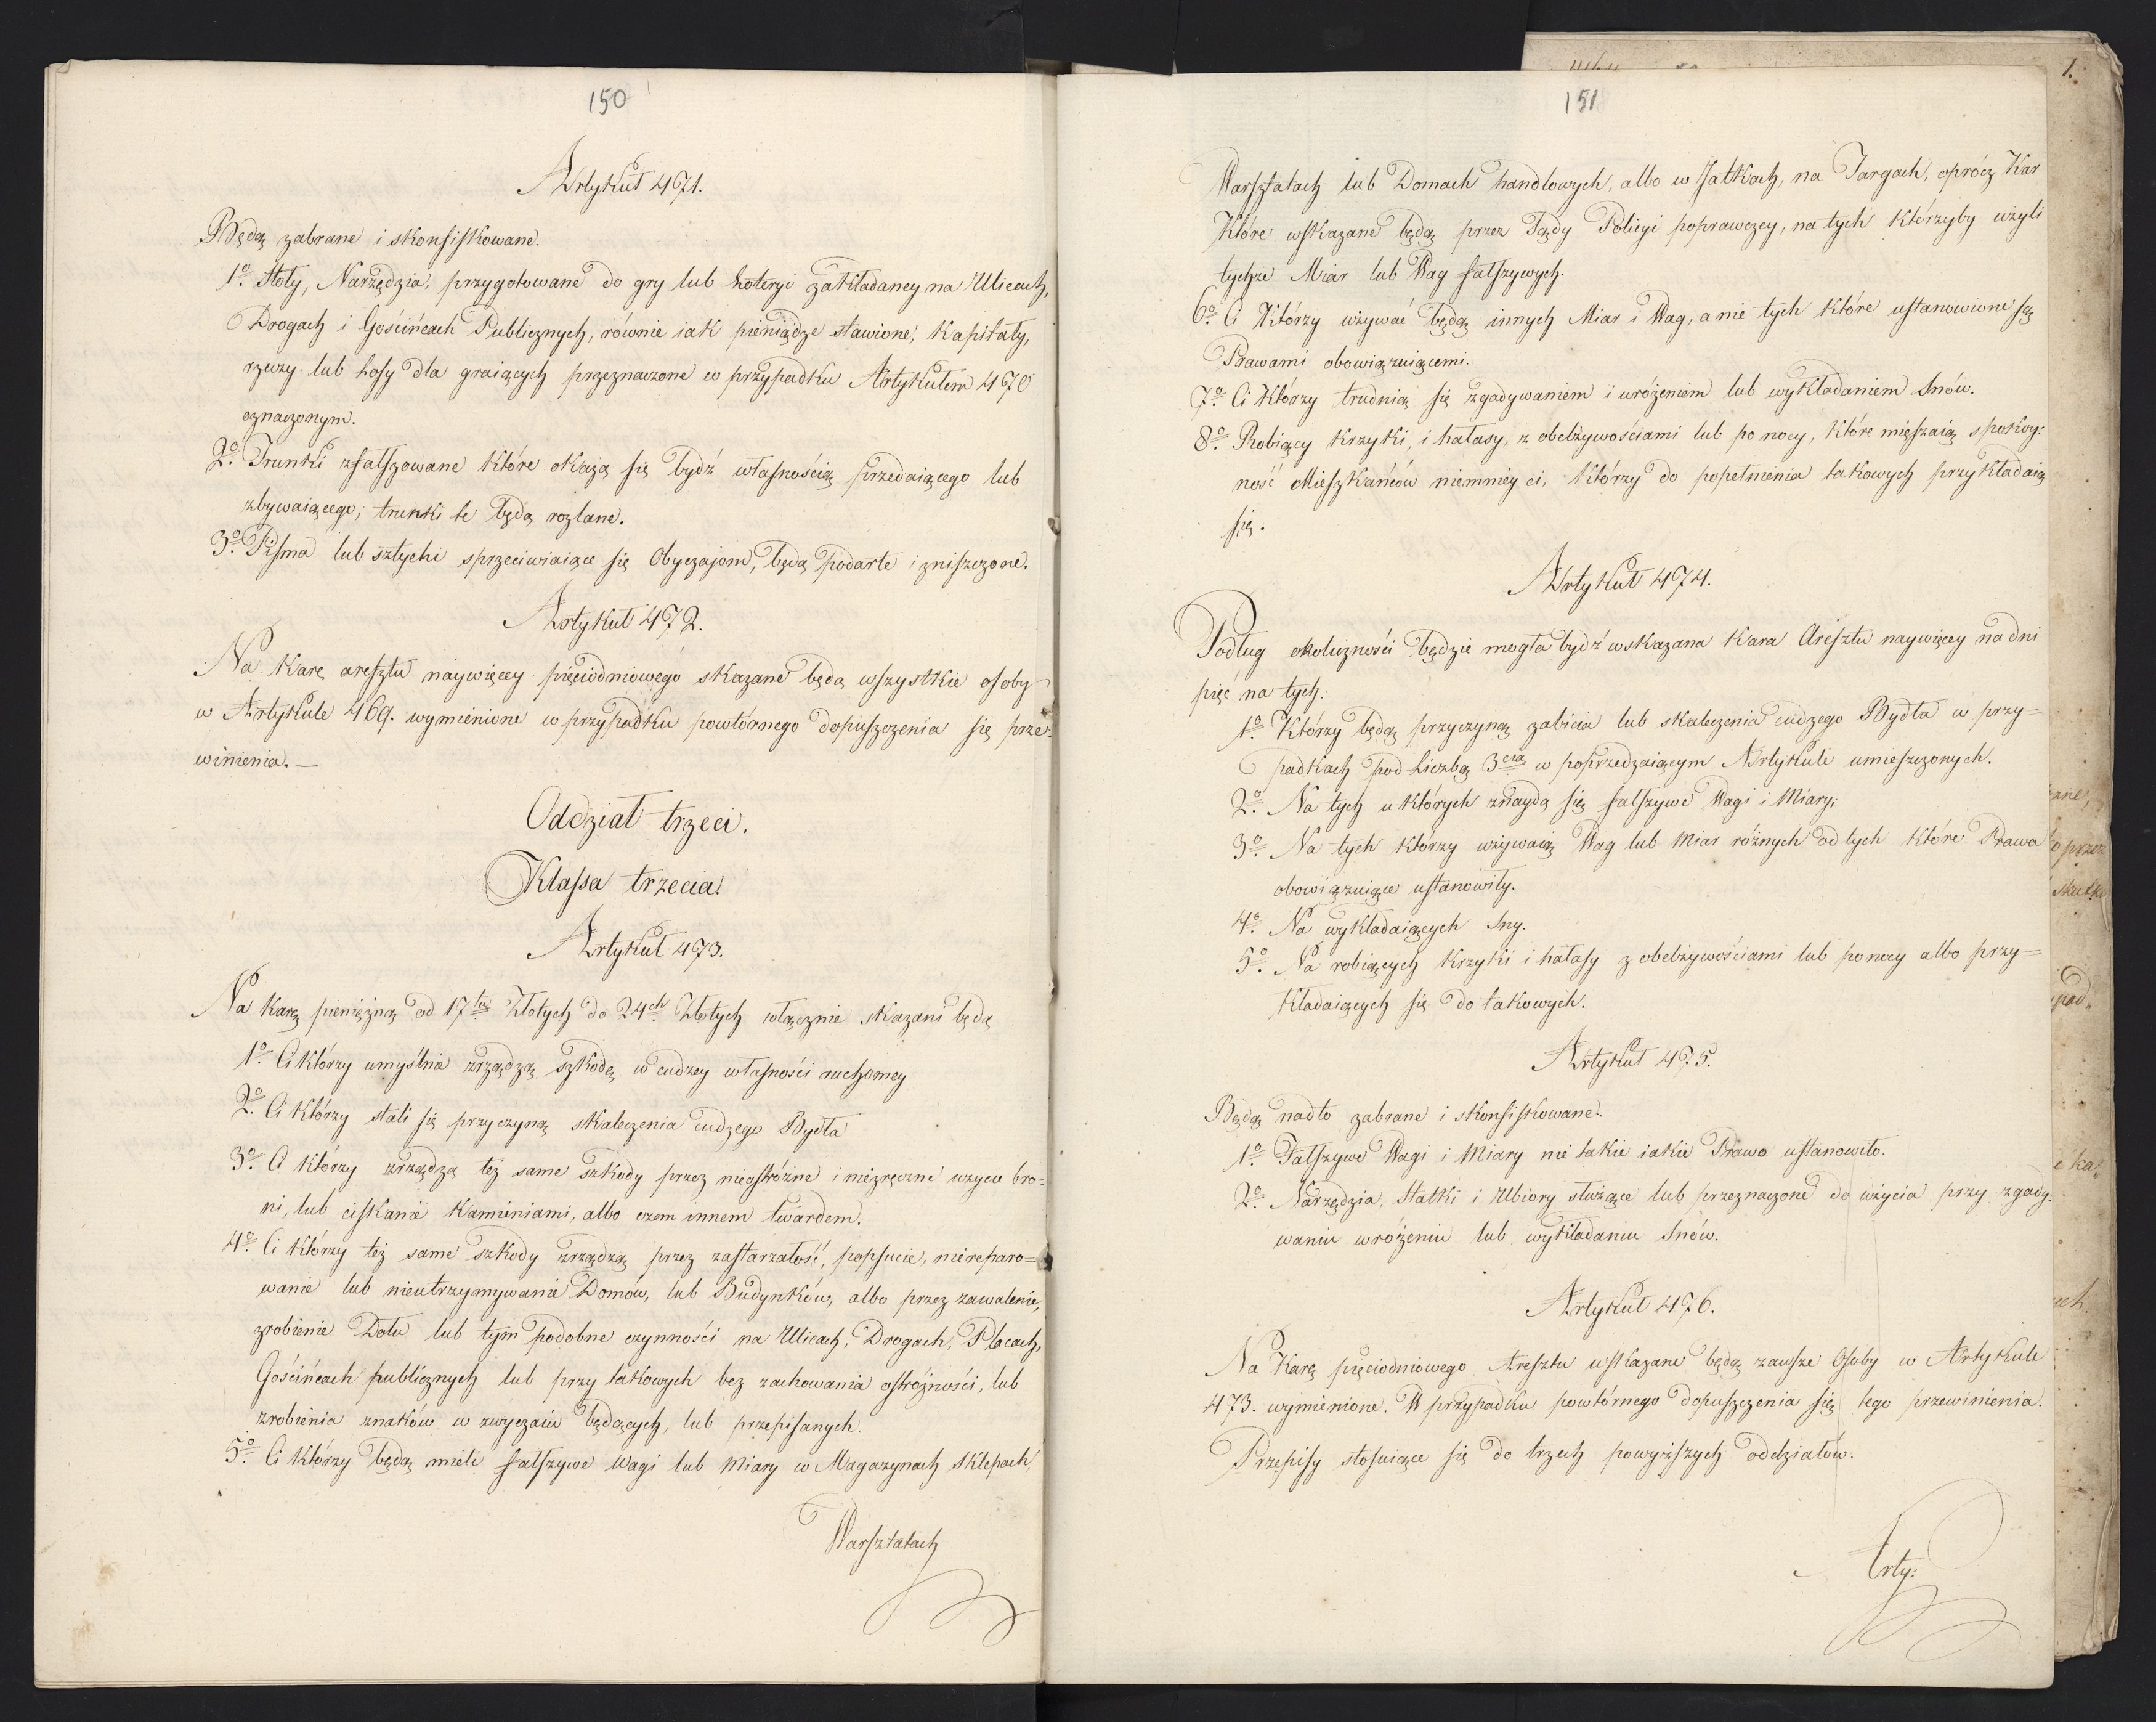 150
Artykuł 471.
Będą zabrane i skonfiskowane.
1º. Stoły, Narzędzia, przygotowane do gry lub Loteryi zakładaney na Ulicach,
Drogach i Gościńcach Publicznych, równie iak pieniądze stawione, Kapitały,
rzeczy lub Losy dla graiących przeznaczone w przypadku Artykułem 470
oznaczonym.
2º. Trunki zfałszowane które okażą się bydź własnością przedaiącego lub
zbywaiącego, trunki te będą rozlane.
3º. Pisma lub sztychi sprzeciwiaiące się Obyczajom, będą podarte i zniszczone.
Artykuł 472.
Na Karę aresztu naywięcey pięciodniowego skazane będą wszystkie osoby
w Artykule 469. wymienione w przypadku powtórnego dopuszczenia się prze-
winienia. —
Oddział trzeci.
Klassa trzecia.
Artykuł 473.
Na Karę pieniężną od 17tu Złotych do 24ch Złotych włącznie skazani będą
1º. Ci którzy umyślnie zrządzą szkodę w cudzey własności ruchomey
2º. Ci którzy stali się przyczyną skaleczenia cudzego Bydła
3º. Ci którzy zrządzą też same szkody przez nieostróżne i niezręczne użycie bro=
ni, lub ciskanie Kamieniami, albo czem innem twardem.
4º. Ci którzy też same szkody zrządzą przez zastarzałość, popsucie, niereparo=
wanie lub nieutrzymywanie Domów, lub Budynków, albo przez zawalenie,
zrobienie Dołu lub tym podobne czynności na Ulicach, Drogach, Placach,
Gościńcach publicznych lub przy takowych bez zachowania ostróżności, lub
zrobienia znaków w zwyczaiu będących, lub przepisanych.
5º. Ci którzy będą mieli fałszywe Wagi lub Miary w Magazynach Sklepach,
Warsztatach
151
Warsztatach lub Domach handlowych, albo w Jatkach, na Targach, oprócz Kar
Które wskazane będą przez Sądy Policyi poprawczey, na tych którzyby użyli
tychże Miar lub Wag fałszywych.
6º. Ci Którzy używać będą innych Miar i Wag, a nie tych które ustanowione są
Prawami obowiązuiącemi.
7º. Ci Którzy trudnią się zgadywaniem i wróżeniem lub wykładaniem Snów.
8º. Robiący Krzyki, i hałasy, z obelżywościami lub po nocy, które mięszaią spokoy:
ność Mieszkańców niemniey ci, którzy do popełnienia takowych przykładaią
się.
Artykuł 474.
Podług okoliczności będzie mogła bydź wskazana Kara Aresztu naywięcey na dni
pięć na tych:
1º. Którzy będą przyczyną zabicia lub skaleczenia cudzego Bydła w przy=
padkach pod Liczbą 3cią w poprzedzaiącym Artykule umieszczonych.
2º. Na tych u których znaydą się fałszywe Wagi i Miary;
3º. Na tych którzy używaią Wag lub Miar różnych od tych które Prawa
obowiązuiące ustanowiły.
4º. Na wykładaiących Sny.
5º. Na robiących Krzyki i hałasy z obelżywościami lub po nocy albo przy=
kładaiących się do takowych.
Artykuł 475.
Będą nadto zabrane i skonfiskowane.
1º. Fałszywe Wagi i Miary nie takie iakie Prawo ustanowiło.
2º. Narzędzia, Statki i Ubiory służące lub przeznaczone do użycia przy zgady-
waniu wróżeniu lub wykładaniu Snów.
Artykuł 476.
Na Karę pięciodniowego Aresztu wskazane będą zawsze Osoby w Artykule
473. wymienione. W przypadku powtórnego dopuszczenia się tego przewinienia.
Przepisy stosuiące się do trzech powyższych oddziałów.
Arty:
1.